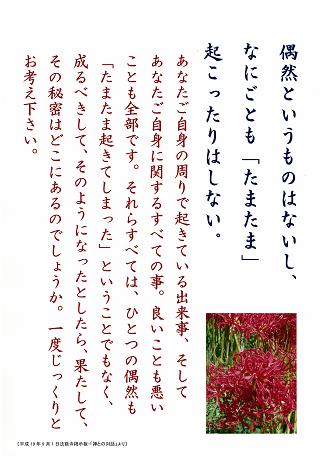 偶然というものはないし、
なにごとも「たまたま」
起こったりはしない。
あなたご自身の周りで起きている出来事、そして
あなたご自身に関するすべての事。良いことも悪い
ことも全部です。それらすべては、ひとつの偶然も
「たまたま起きてしまった」ということでもなく、
成るべきして、そのようになったとしたら、果たして、
その秘密はどこにあるのでしょうか。一度じっくりと
お考え下さい。
【平成19年9月1日法龍寺掲示板・「神との対話」より】